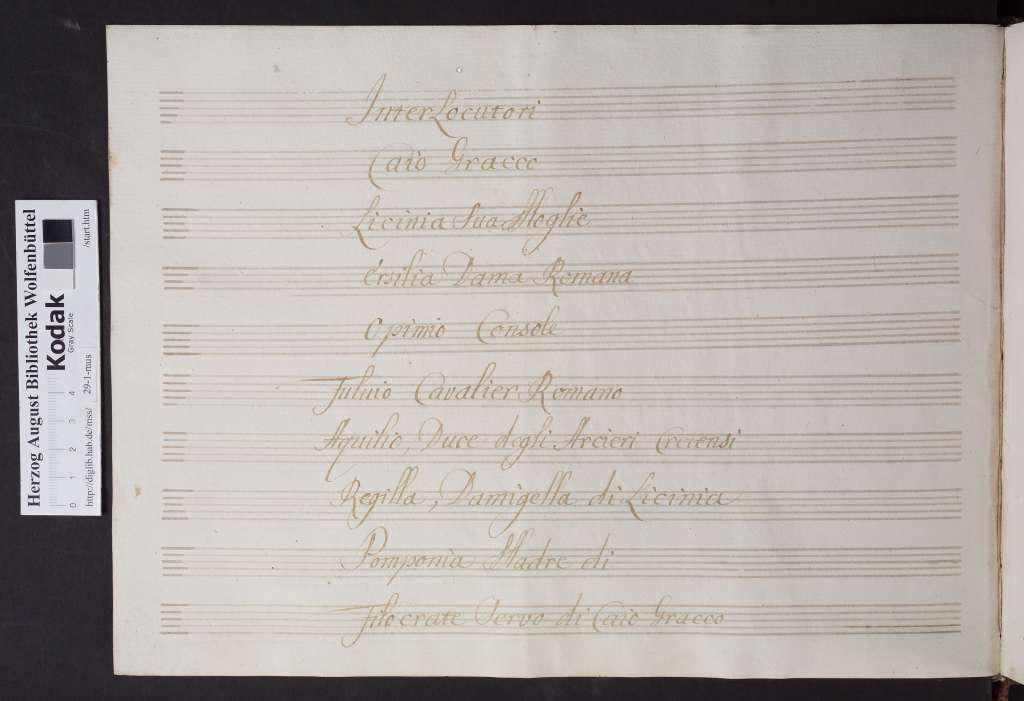 InterLocutori
Caio Gracco
Licinia Sua Moglie
Ersilia Dama Romana
Opimio Console
Fuluio Cavalier Romano
Aquilio, Duce degli Arcieri Cretensi
Regilla, Damigella di Licinia
Pomponia Madre di
Filocrate Servo di Caio Gracco
Herzog August Bibliothek Wolfenbüttel
Kodak
Gray Scale
0 1 2 3 4
http://diglib.hab.de/mss/ 29-1-mus /start.htm